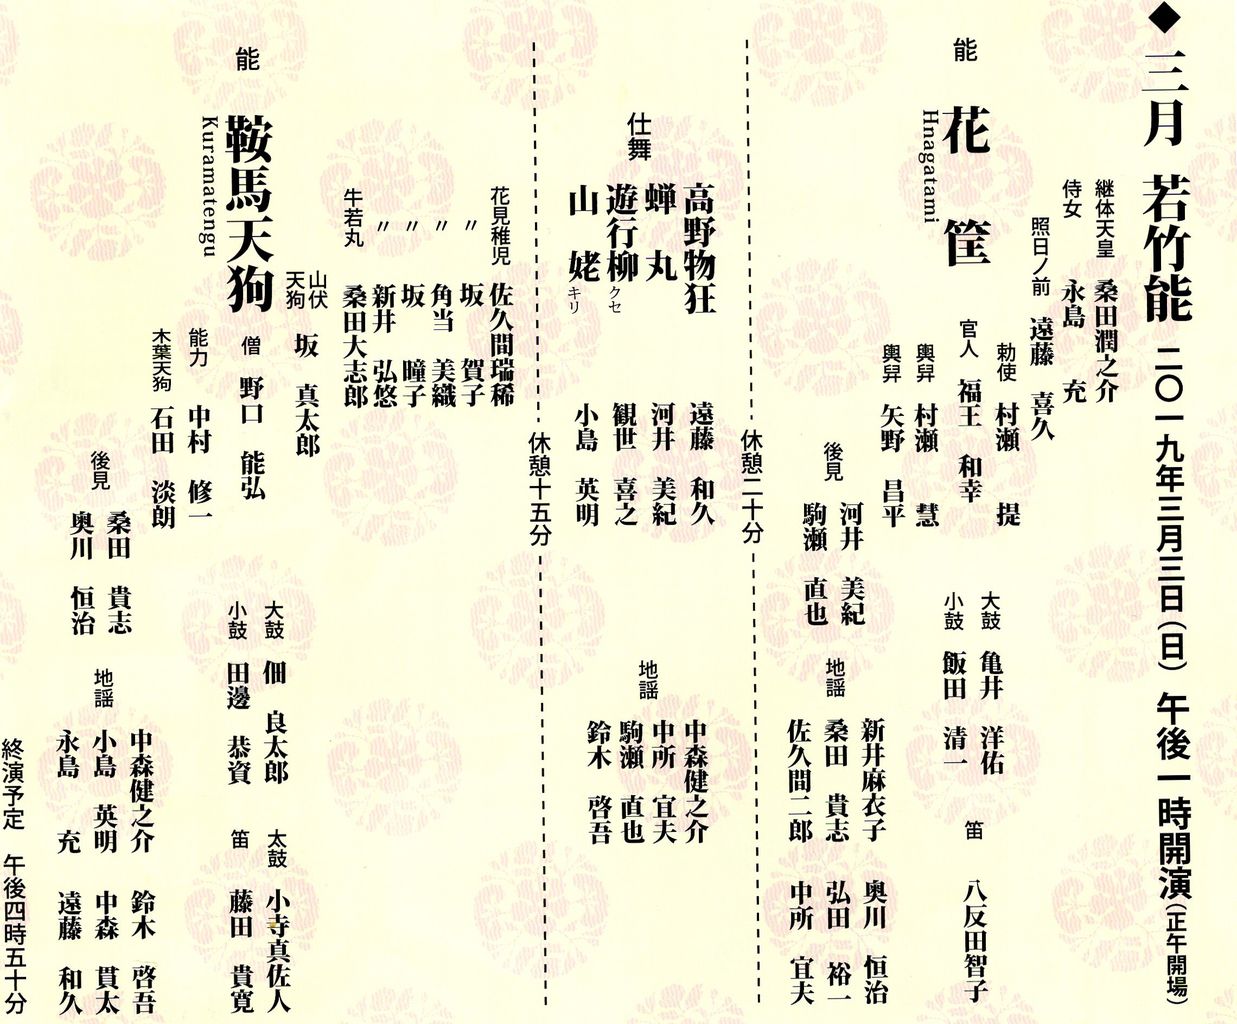 ◆三月 若竹能 二〇一九年三月三日(日) 午後一時開演(正午開場)
能 花筐
Hnagatami
継体天皇 桑田潤之介
侍女 永島 充
照日ノ前 遠藤 喜久
勅使 村瀬 提
官人 福王 和幸
輿舁 村瀬 慧
輿舁 矢野 昌平
大鼓 亀井 洋佑
小鼓 飯田 清一
笛 八反田智子
後見 河井 美紀
駒瀬 直也
地謡
新井麻衣子 奥川 恒治
桑田 貴志 弘田 裕一
佐久間二郎 中所 宜夫
休憩二十分
仕舞
高野物狂 遠藤 和久
蝉丸 河井 美紀
遊行柳 クセ 観世 喜之
山姥 キリ 小島 英明
地謡
中森健之介
中所 宜夫
駒瀬 直也
鈴木 啓吾
休憩十五分
能 鞍馬天狗
Kuramatengu
花見稚児 佐久間瑞稀
〃 坂 賀子
〃 角当 美織
〃 坂 瞳子
〃 新井 弘悠
牛若丸 桑田大志郎
山伏
天狗 坂 真太郎
僧 野口 能弘
能力 中村 修一
木葉天狗 石田 淡朗
大鼓 佃 良太郎
小鼓 田邊 恭資
太鼓 小寺真佐人
笛 藤田 貴寛
後見 桑田 貴志
奥川 恒治
地謡
中森健之介 鈴木 啓吾
小島 英明 中森 貫太
永島 充 遠藤 和久
終演予定 午後四時五十分